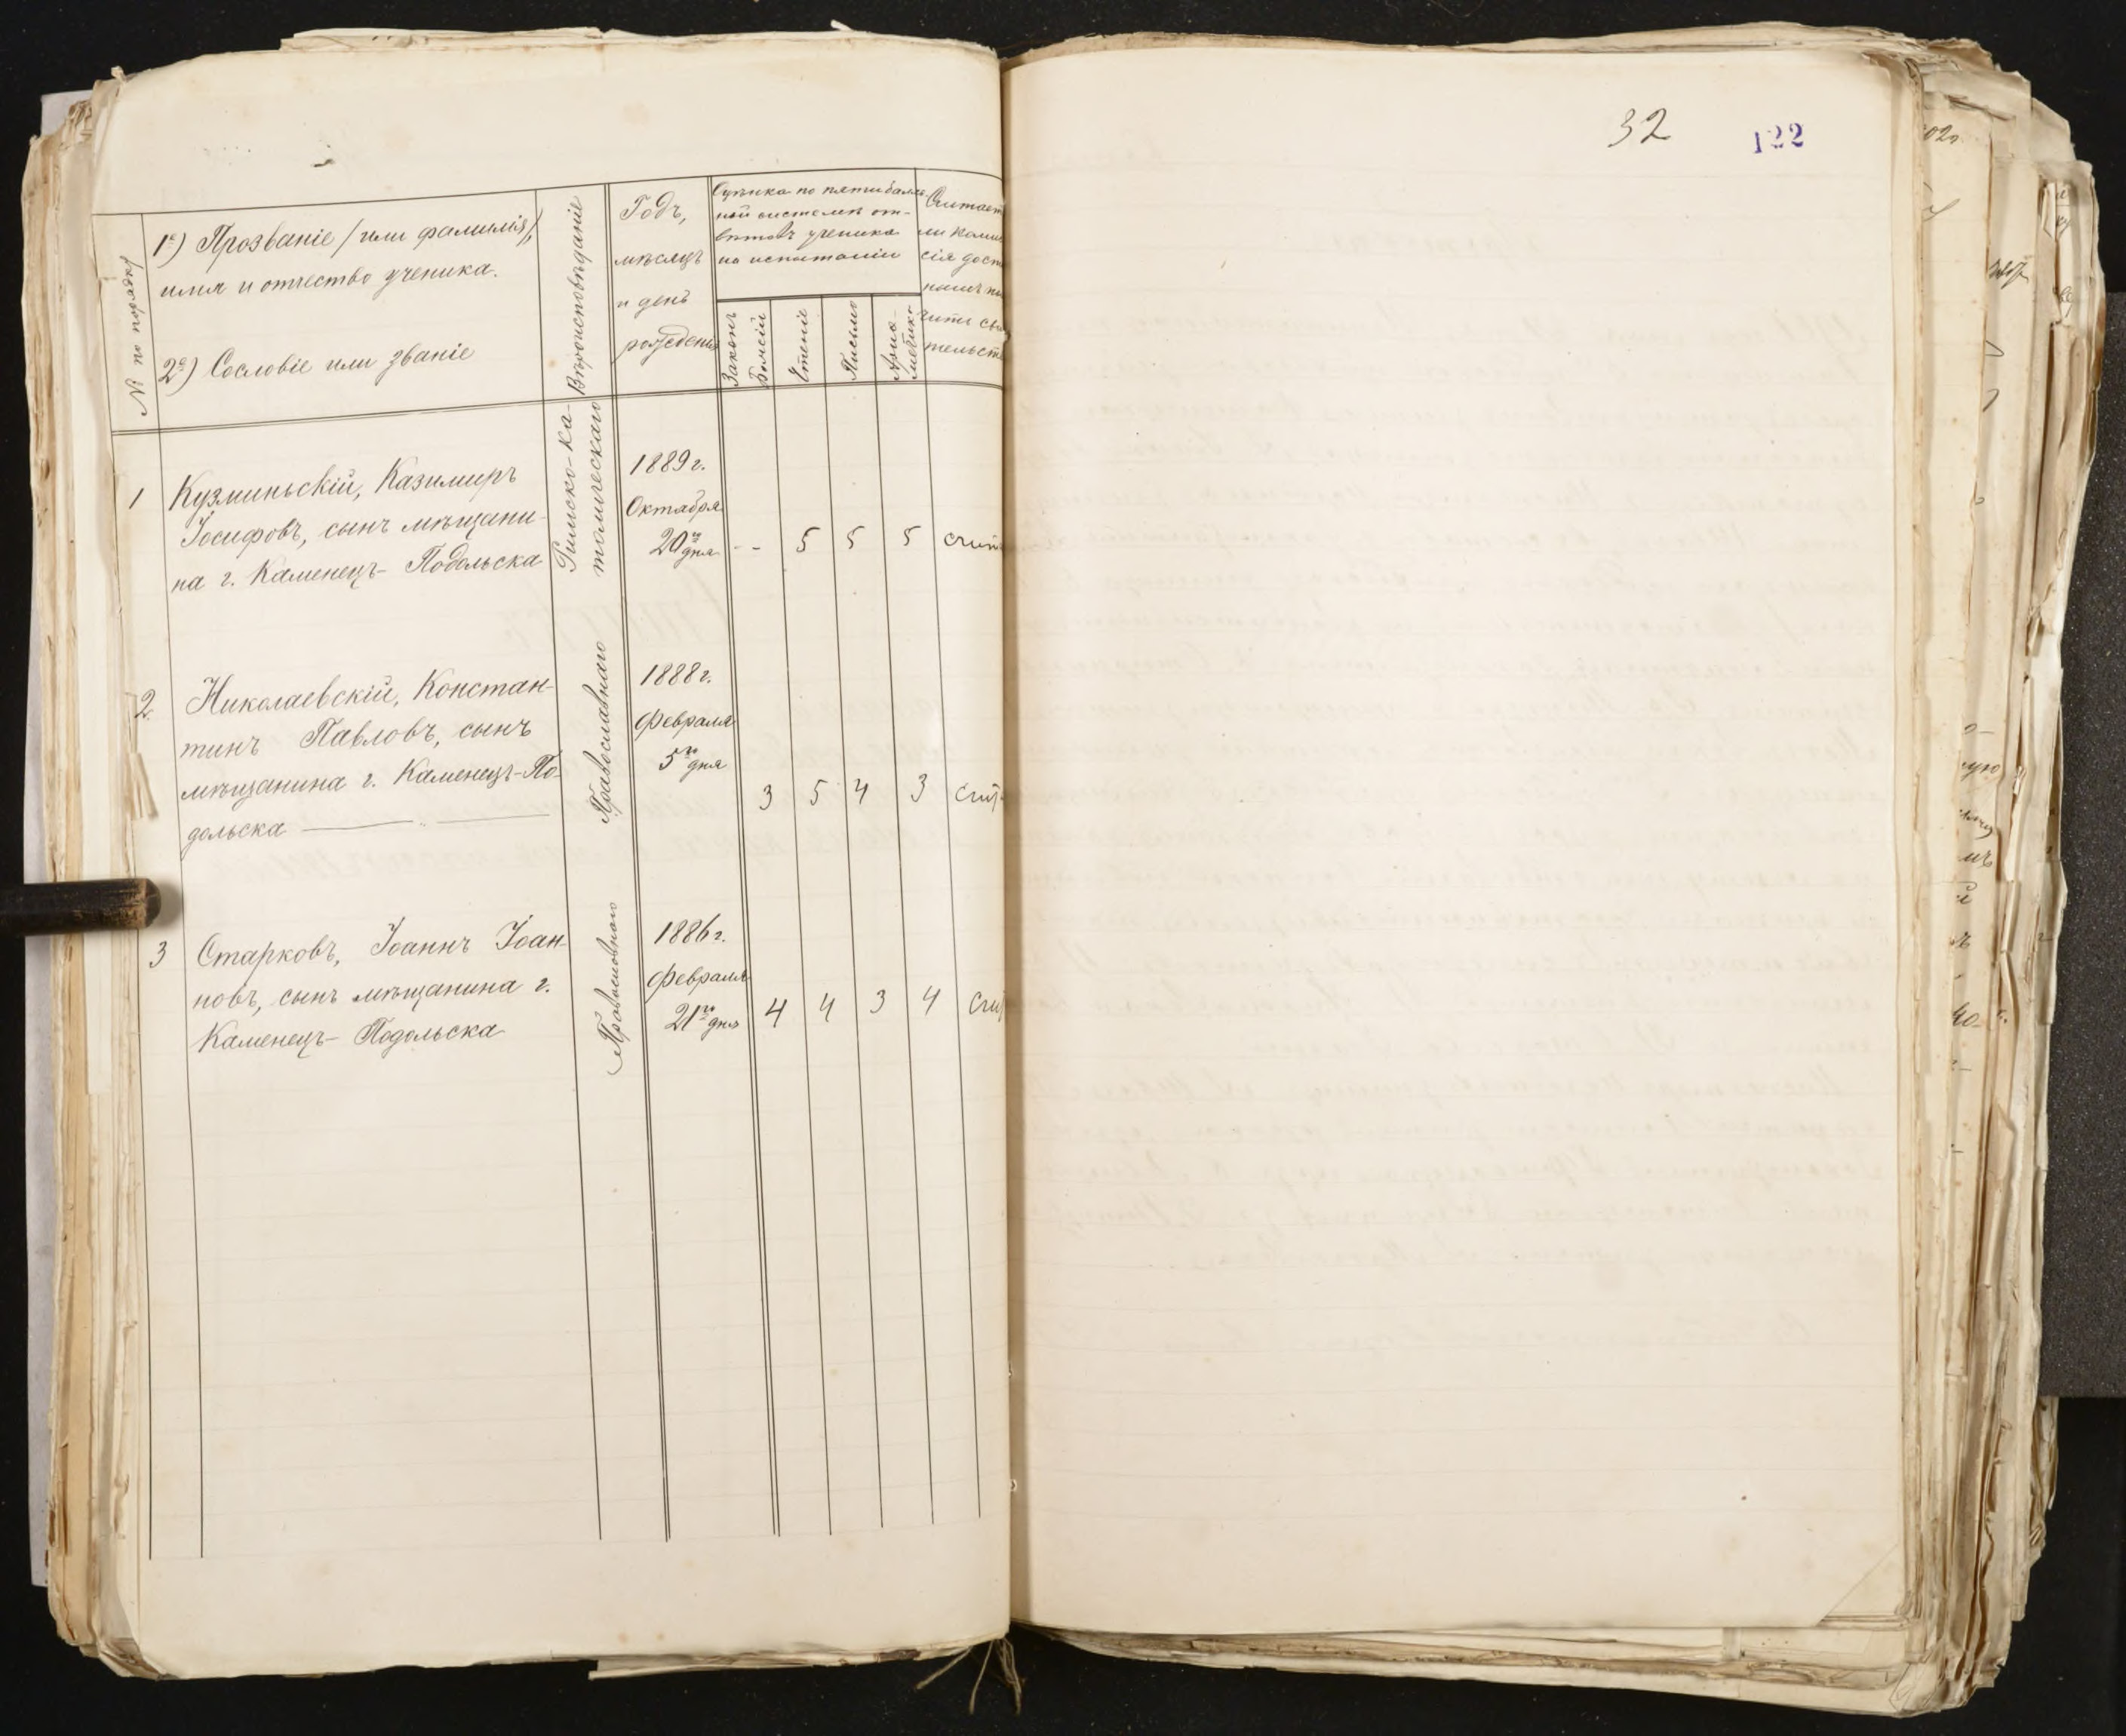 № по порядку
1е) Прозваніе /или фамилія/,
имя и отчество ученика.
2е) Сословіе или званіе
Вѣроисповѣданіе
Годъ,
мѣсяцъ
и день
рожденія
Оцѣнка по пятибалль-
ной системѣ от-
вѣтовъ ученика
на испытаніи
Законъ
Божій
Чтеніе
Письмо
Ариѳ-
метика
Считает
ли комис
сія дост
чить сви
тельст
1
Кузминьскій, Казимиръ
Іосифовъ, сынъ мѣщани-
на г. Каменецъ-Подольска
Римско-ка-
толическаго
1889 г.
Октября
20го дня
- -
5
5
5
счит
2
Николаевскій, Констан-
тинъ Павловъ, сынъ
мѣщанина г. Каменецъ-По-
дольска
Православнаго
1888 г.
Февраля
5го дня
3
5
4
3
счит
3
Старковъ, Іоаннъ Іоан-
новъ, сынъ мѣщанина г.
Каменецъ-Подольска
Православнаго
1886 г.
Февраля
21го дня
4
4
3
4
счит
32
122